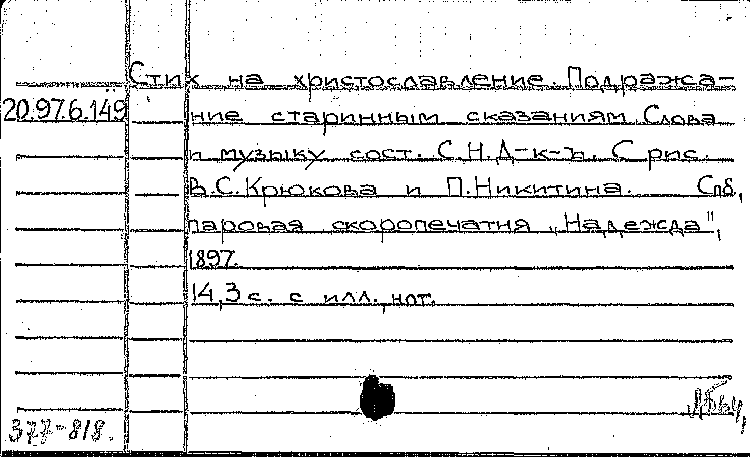 Стих на христославление. Подража-
20.97.6.149 ние старинным сказаниям. Слова
и музыку сост. С.Н.Д-к-ъ. С рис.
В.С.Крюкова и П.Никитина. Спб,
паровая скоропечатня „Надежда",
1897.
14,3 с. с илл., нот.
377-818.